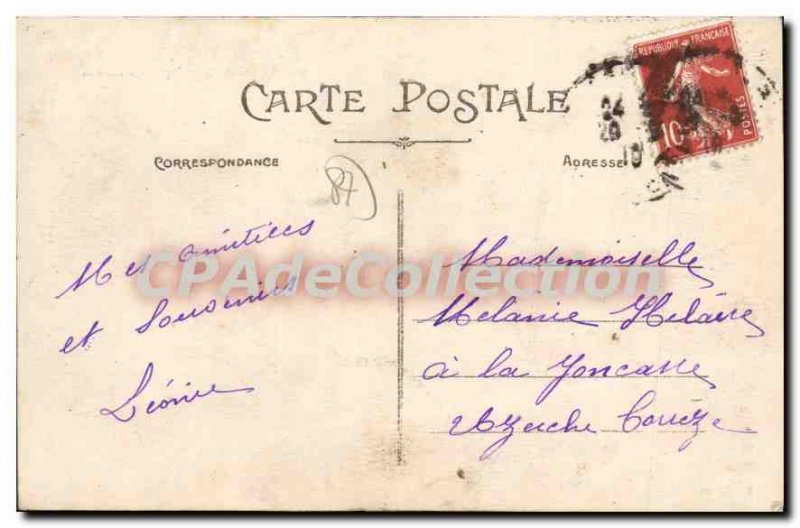 CARTE POSTALE
CORRESPONDANCE
ADRESSE
REPUBLIQUE FRANÇAISE
POSTES
10
87
Mes amitiées
et Souvenirs
Léonie
Mademoiselle
Mélanie Hilaire
à la Joncasse
Uzerche Corrèze
CPAdeCollection